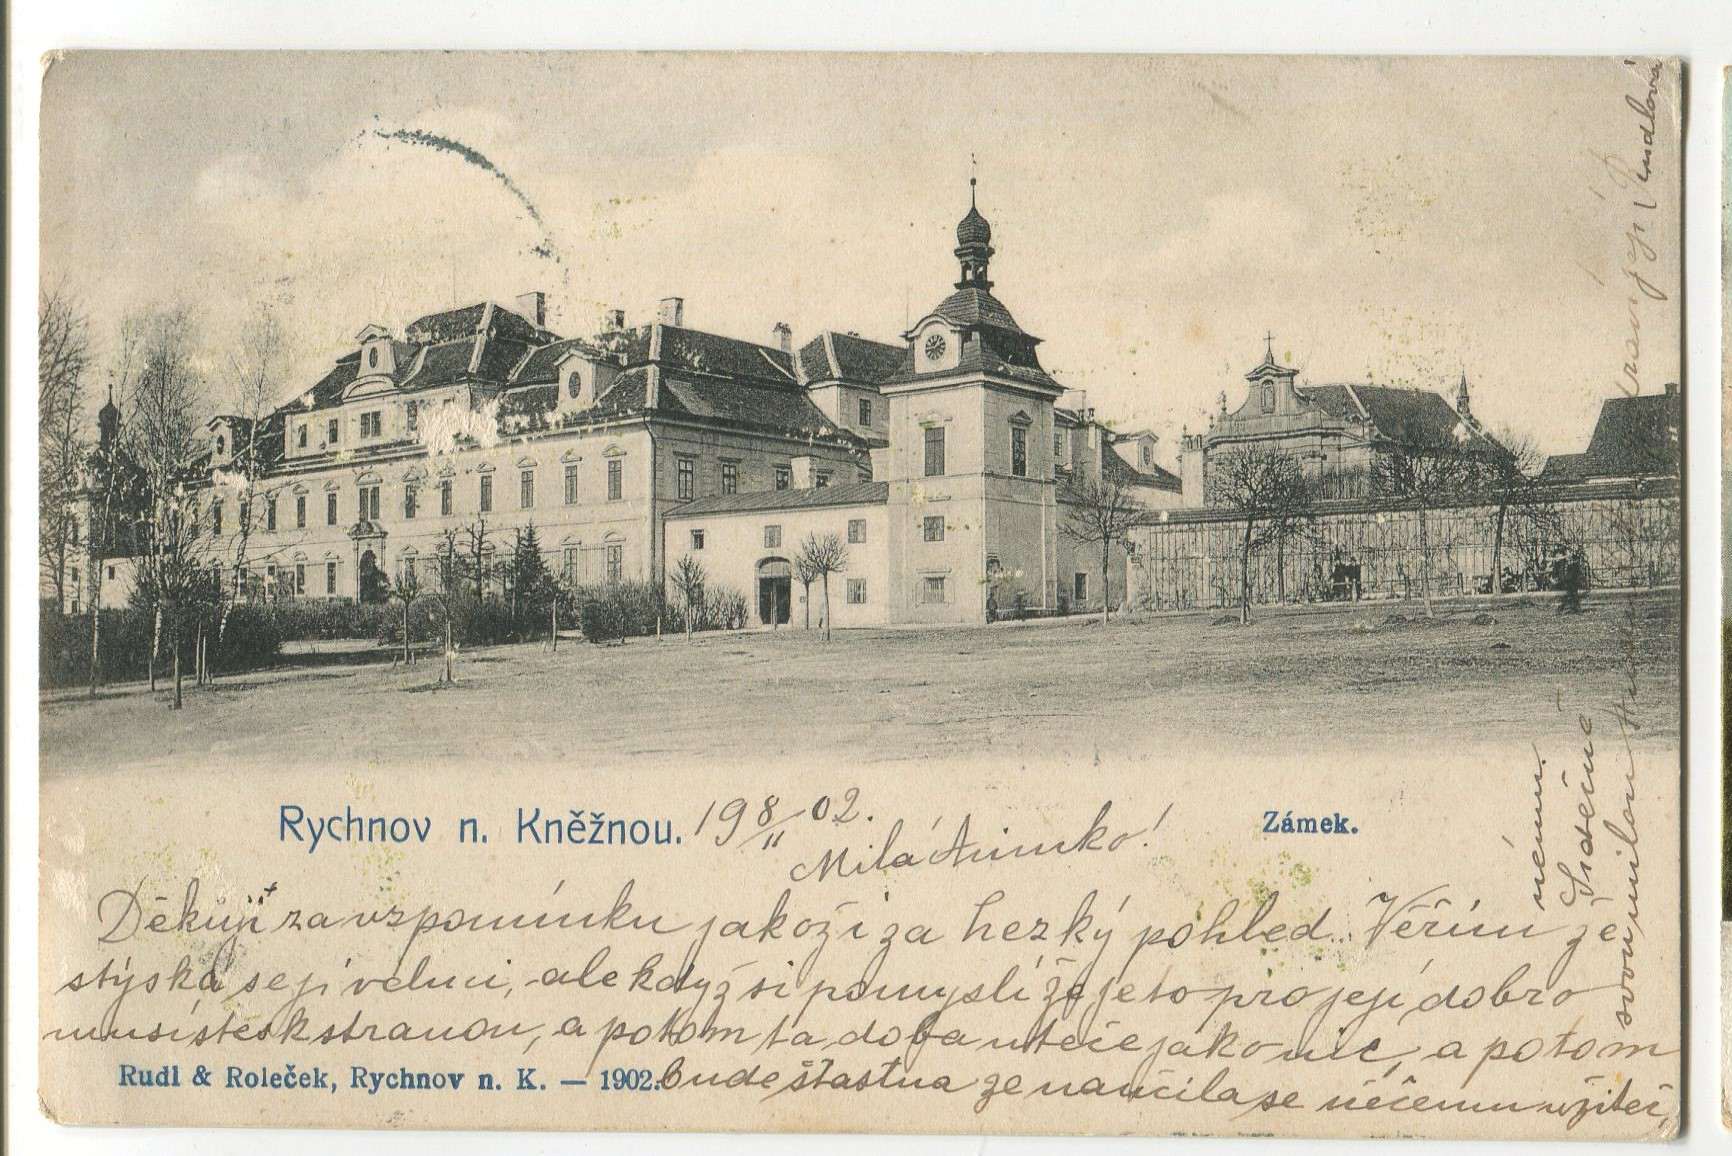 Rychnov n. Kněžnou.
19 8/11 02.
Zámek.
Milá Aninko!
Děkuji za vzpomínku jakož i za hezký pohled. Věřím že
stýská se jí velmi, ale když si pomyslí že je to pro její dobro
musí stesk stranou, a potom ta doba uteče jako nic, a potom
bude šťastna že naučila se něčemu užiteč
Rudl & Roleček, Rychnov n. K. — 1902.
nému.
Srdečně
svou milou zdraví její